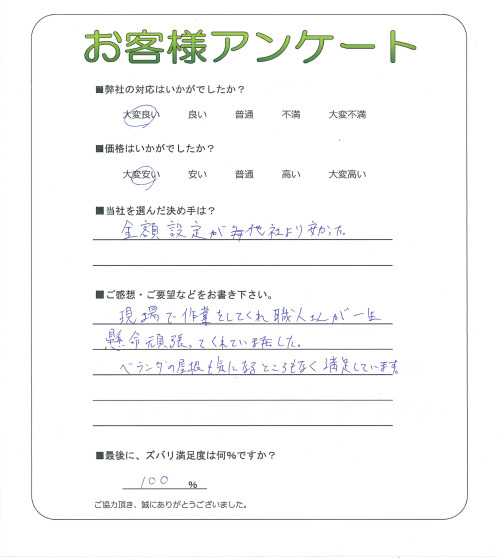 お客様アンケート
■弊社の対応はいかがでしたか？
大変良い 良い 普通 不満 大変不満
■価格はいかがでしたか？
大変安い 安い 普通 高い 大変高い
■当社を選んだ決め手は？
金額設定が 他社より安かった。
■ご感想・ご要望などをお書き下さい。
現場で作業をしてくれ職人さんが一生
懸命頑張ってくれていました。
ベランダの屋根も気になるところもなく満足しています。
■最後に、ズバリ満足度は何%ですか？
100 %
ご協力頂き、誠にありがとうございました。